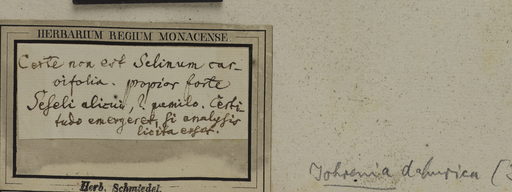 HERBARIUM REGIUM MONACENSE
Certe non est Selinum car-
vifolia. propior forte
Seseli alicui, ? pumilo. Certi-
tudo emergeret, si analysis
licita esset.
Herb. Schmiedel.
Johrenia dahurica (